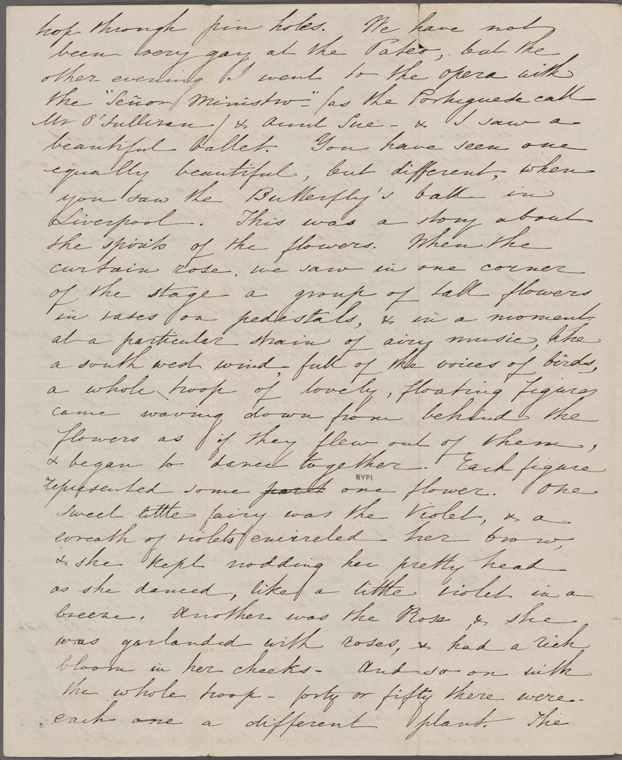 hop through pin holes. We have not
been very gay at the Pateo, but the
other evening I went to the opera with
the "Señor Ministro" (as the Portuguese call
Mr O'Sullivan) & aunt Sue - & I saw a
beautiful ballet. You have seen one
equally beautiful, but different, when
you saw the Butterfly's ball in
Liverpool. This was a story about
the spirits of the flowers. When the
curtain rose, we saw in one corner
of the stage a group of tall flowers
in vases on pedestals, & in a moment,
at a particular strain of airy music, like
a south west wind, full of the voices of birds,
a whole troop of lovely, floating figures
came waving down from behind the
flowers as if they flew out of them,
& began to dance together. Each figure
NYPL
represented some one flower. One
sweet little fairy was the Violet, & a
wreath of violets encircled her brow,
& she kept nodding her pretty head
as she danced, like a little violet in a
breeze. Another was the Rose, & she
was garlanded with roses, & had a rich
bloom in her cheeks - And so on with
the whole troop - forty or fifty there were -
each one a different plant. The